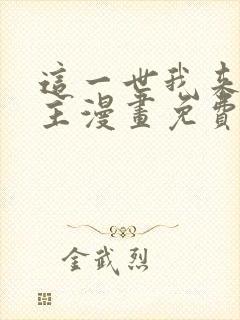 這一世我來
主漫畫免費
金武烈